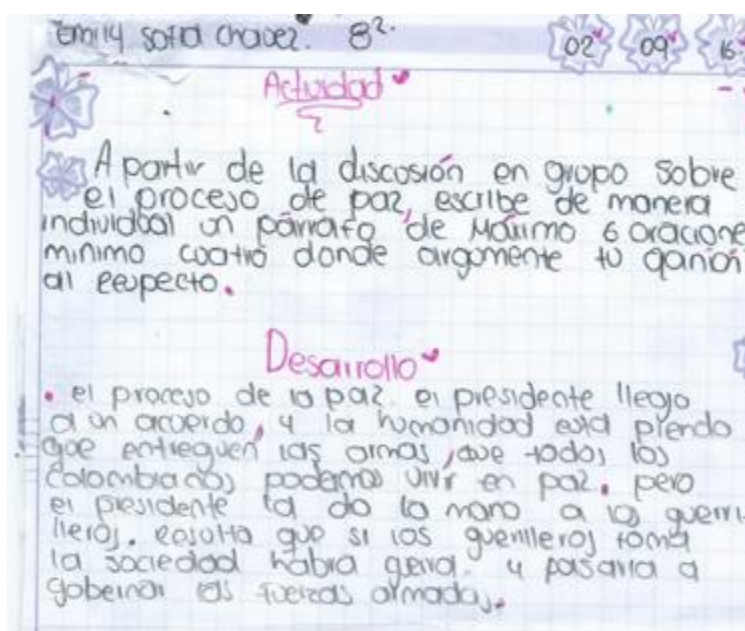 Emily Sofia Chavez. 8².
02 09 16
Actividad
A partir de la discusión en grupo sobre
el proceso de paz, escribe de manera
individual un párrafo de Máximo 6 oracione
minimo cuatro donde argumente tu
al Respecto.
Desarrollo
• el proceso de la paz. el presidente llego
a un acuerdo, y la humanidad está piendo
que entreguen las armas, que todos los
Colombianos podemos vivir en paz. pero
el presidente la do la mano a los guerri
lleros. Resulta que si los guerilleros toma
la sociedad habra gerra. y pasaria a
gobernar las fuerzas armadas.